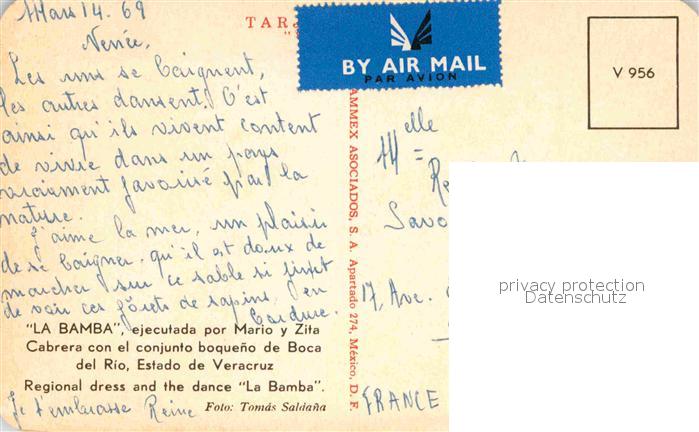 Mars 14. 69
TAR
Nenée,
BY AIR MAIL
PAR AVION
V 956
Les uns se baignent,
les autres dansent. C'est
ainsi qu'ils vivent content
de vivre dans un pays
vraiment favorisé par la
nature.
J'aime la mer, un plaisir
de se baigner, qu'il est doux de
marcher sur ce sable si
de voir ces forêts de sapins, en
bordure.
"LA BAMBA", ejecutada por Mario y Zita
Cabrera con el conjunto boqueño de Boca
del Río, Estado de Veracruz
Regional dress and the dance "La Bamba".
Je t'embrasse Reine
Foto: Tomás Saldaña
AMMEX ASOCIADOS, S. A. Apartado 274, México, D. F.
Melle
Savo
17, Ave.
FRANCE
privacy protection
Datenschutz